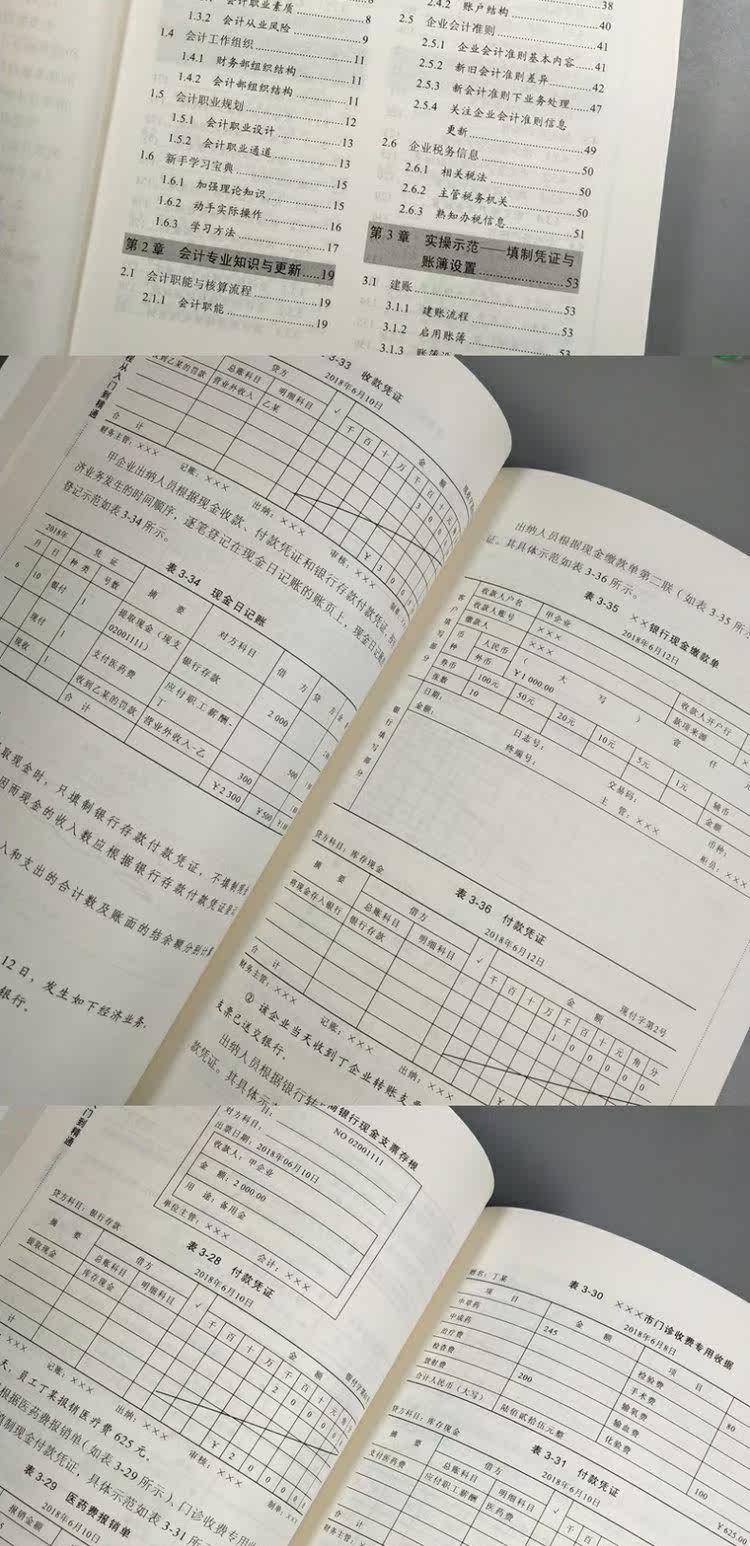 1.3.2 会计从业风险 9
1.4 会计工作组织 11
1.4.1 财务部组织结构 11
1.4.2 会计部组织结构 11
1.5 会计职业规划 12
1.5.1 会计职业设计 13
1.5.2 会计职业通道 13
1.6 新手学习宝典 15
1.6.1 加强理论知识 15
1.6.2 动手实际操作 16
1.6.3 学习方法 17
第2章 会计专业知识与更新 19
2.1 会计职能与核算流程 19
2.1.1 会计职能 19
2.4.2 账户结构 38
2.5 企业会计准则 40
2.5.1 企业会计准则基本内容 41
2.5.2 新旧会计准则差异 42
2.5.3 新会计准则下业务处理 47
2.5.4 关注企业会计准则信息
更新 49
2.6 企业税务信息 50
2.6.1 相关税法 50
2.6.2 主管税务机关 50
2.6.3 熟知办税信息 51
第3章 实操示范——填制凭证与
账簿设置 53
3.1 建账 53
3.1.1 建账流程 53
3.1.2 启用账簿 53
3-33 收款凭证
2018年6月10日
贷方
总账科目 明细科目 √ 金额
收到乙某的罚款 营业外收入 乙某
千 百 十 万 千 百 十 元
合计
财务主管：××× 记账：××× 出纳：××× 审核：×××
甲企业出纳人员根据现金收款、付款凭证和银行存款付款凭证，
济业务发生的时间顺序，逐笔登记在现金日记账的账页上，现金日记账
登记示范如表3-34所示。
表3-34 现金日记账
2018年 凭证 摘要 对方科目 借方 贷方
月 日 种类 号数
6 10 银付 1 提取现金（现支02001111） 银行存款 2 000
现付 1 支付医药费 应付职工薪酬-丁 500
现收 1 收到乙某的罚款 营业外收入-乙 300
合计 ¥2 300 ¥500
取现金时，只填制银行存款付款凭证，不填制
因而现金的收入数应根据银行存款付款凭证
入和支出的合计数及账面的结余额分别
12日，发生如下经济业务。
银行。
出纳人员根据现金缴款单第二联（如表3-35所
证，其具体示范如表3-36所示。
表3-35 ××银行现金缴款单
2018年6月12日
客户填写部分
收款人户名 甲企业
收款人账号 ×××
缴款人 ××× 收款人开户行
款项来源
币种 人民币 （大写） 壹仟元
外币 ¥1 000.00
券币 100元 50元 20元 10元 5元 1元 辅币
张数 10 金额
银行填写部分
日期： 日志号： 交易码： 币种：
金额： 终端号： 主管：××× 柜员：×××
表3-36 付款凭证
贷方科目：库存现金 2018年6月12日 现付字第2号
摘要 借方 √ 金额
总账科目 明细科目 千 百 十 万 千 百 十 元 角 分
将现金存入银行 银行存款 1 0 0 0 0 0
合计
财务主管：××× 记账：××× 出纳：×××
② 该企业当天收到丁企业转账支票
支票已送交银行。
出纳人员根据银行转
款凭证。其具体示
银行现金支票存根
NO 02001111
对方科目：
出票日期：2018年06月10日
收款人：甲企业
金额：2 000.00
用途：备用金
单位主管：××× 会计：×××
表3-28 付款凭证
贷方科目：银行存款 2018年6月10日
摘要 借方 √ 金额
总账科目 明细科目 千 百 十 万 千 百 十 元
提取现金 库存现金 2 0 0 0 0
计
××× 记账：××× 出纳：××× 审核：×××
天，员工丁某报销医疗费625元。
根据医药费报销单（如表3-29所示）、门诊收费专用
填制现金付款凭证，具体示范如表3-31所
表3-29 医药费报销单
2018年6月10日
报销金额
表3-30 ×××市门诊收费专用收据
姓名：丁某 2018年6月8日
项目 金额 项目
中草药 检验费
中成药 245 手术费 80
治疗费 输氧费
检查费 200 输血费
放射费 化验费 100
合计人民币（大写） 陆佰贰拾伍元整 ¥625.00
表3-31 付款凭证
贷方科目：库存现金 2018年6月10日
摘要 借方 √
总账科目 明细科目 千 百 十
支付医药费 应付职工薪酬 医药费